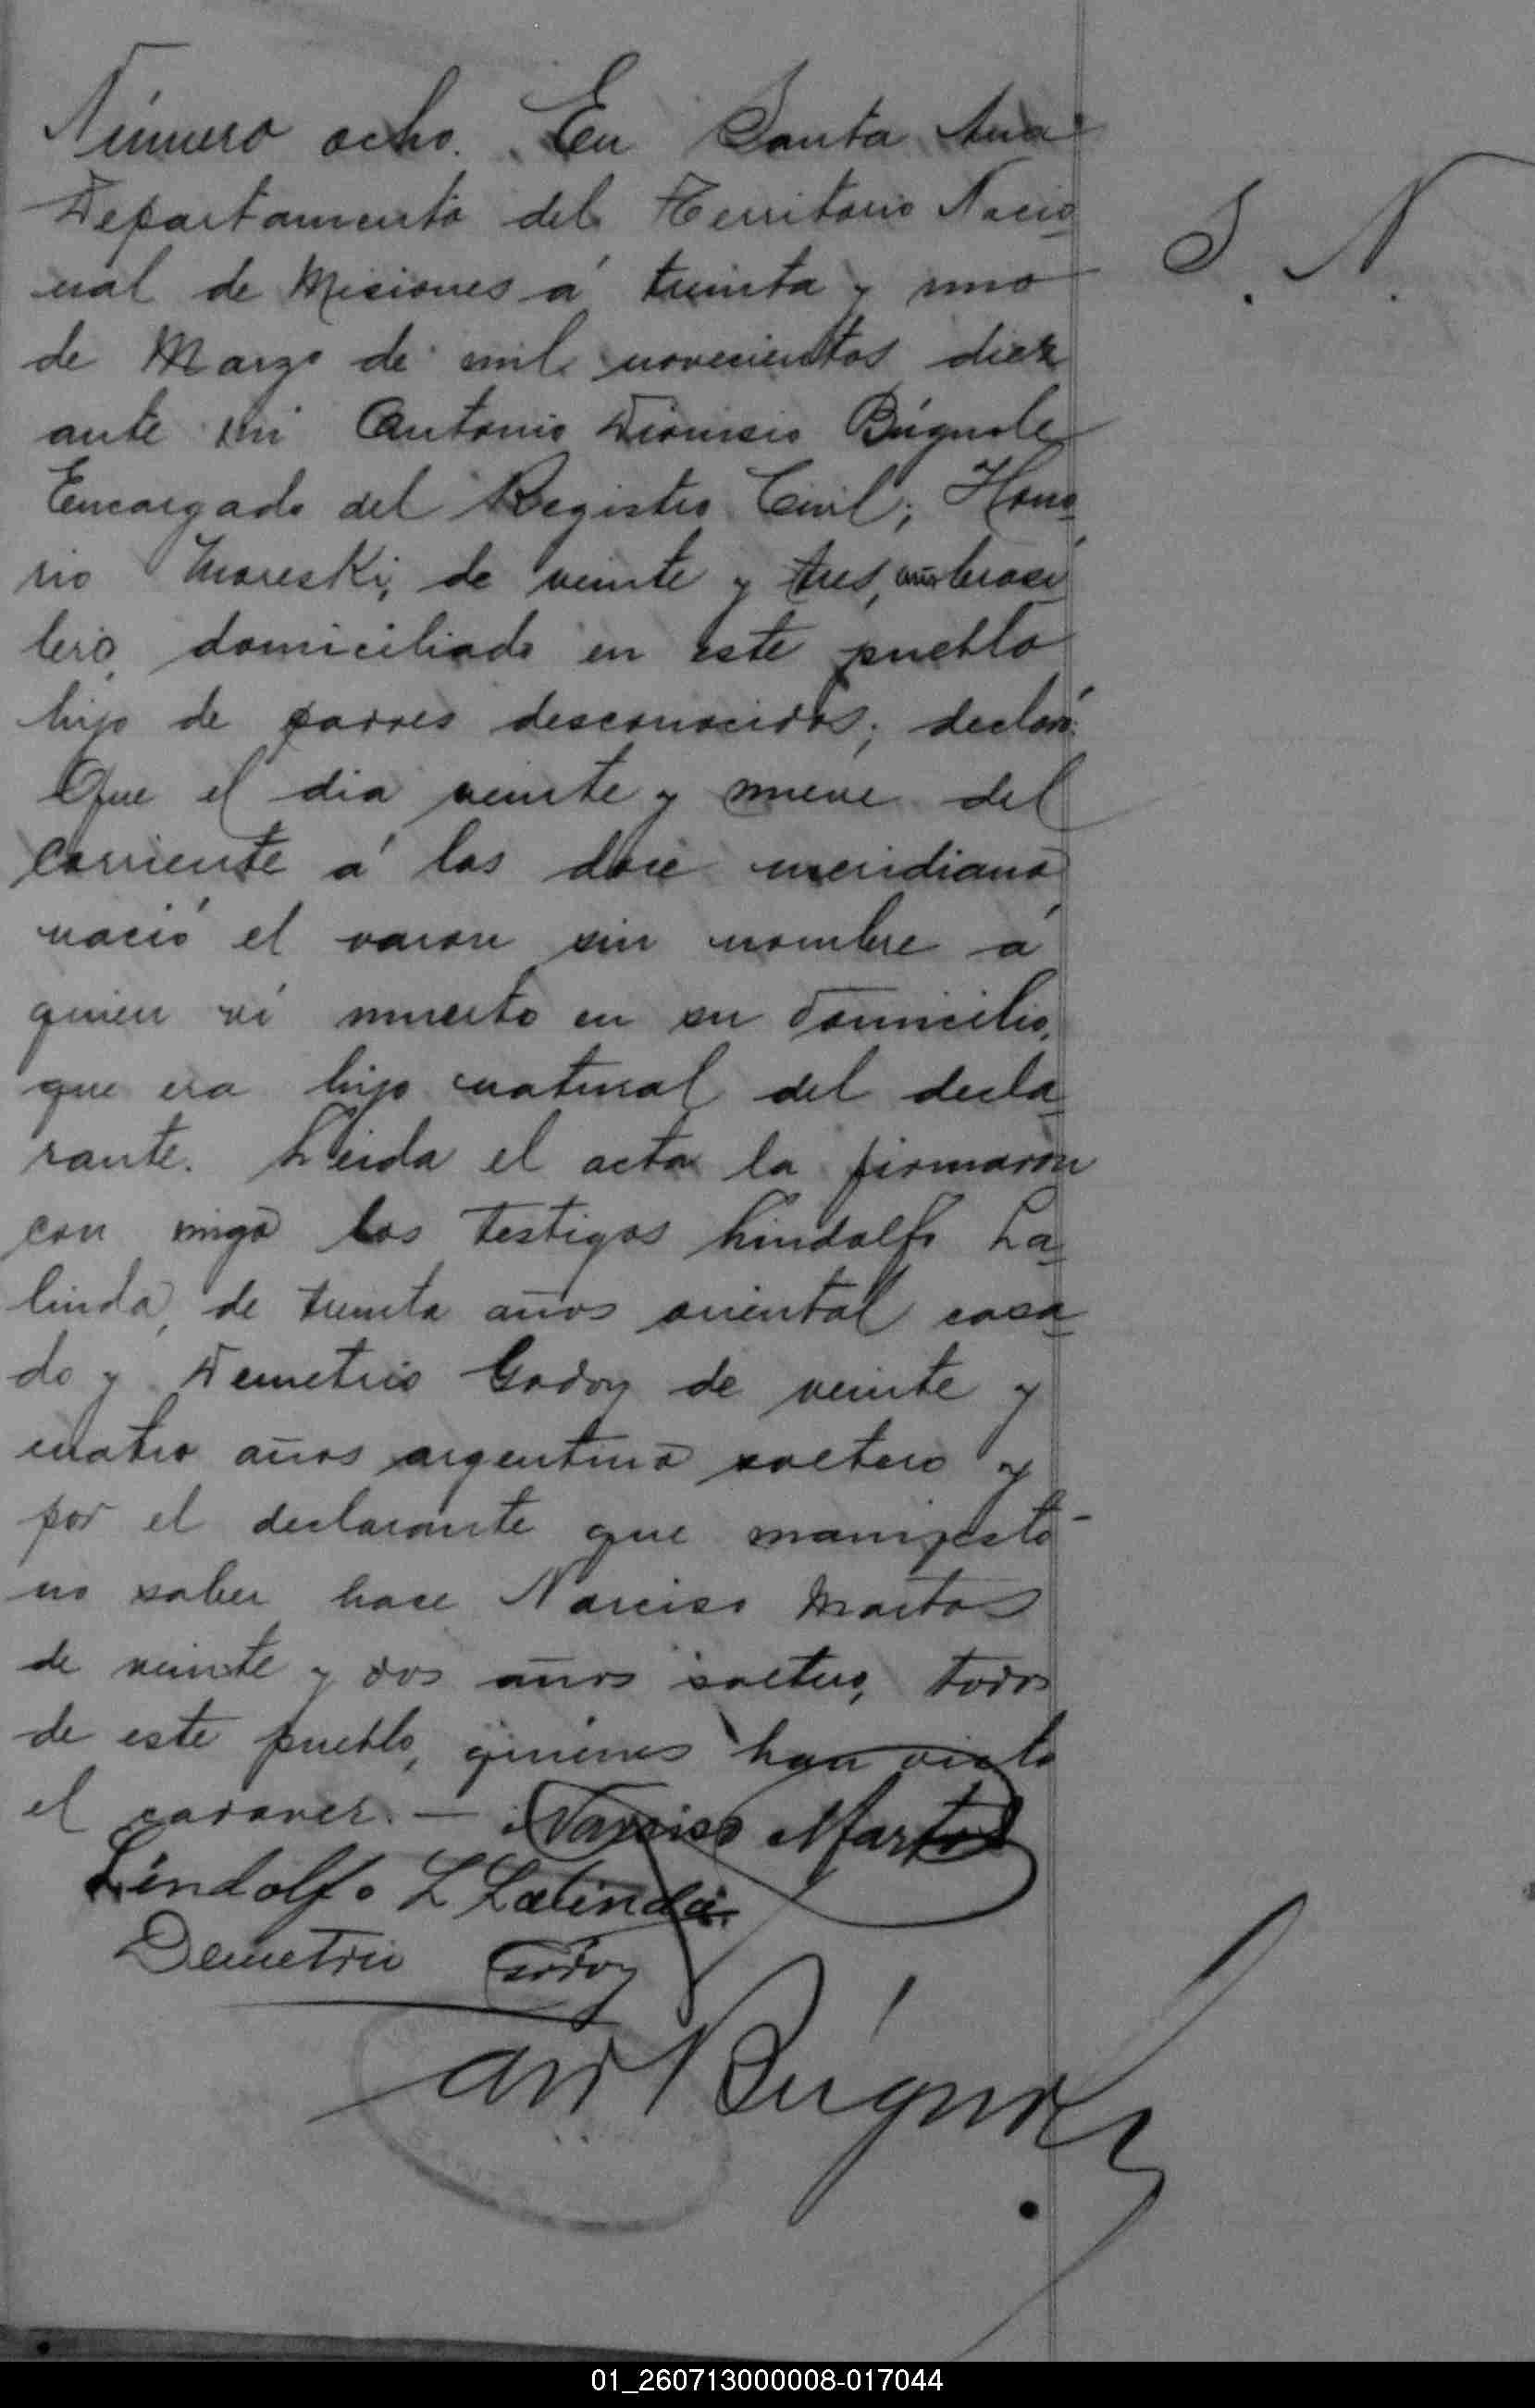 Número ocho. En Santa Ana
Departamento del Territorio Nacio
nal de Misiones á treinta y uno
de Marzo de mil novecientos diez
ante mi Antonio Dionisio Búgnole
Encargado del Registro Civil; Hono
rio Mareski, de veinte y tres, años brasi
lero, domiciliado en este pueblo
hijo de padres desconocidos; declaró:
Que el dia veinte y nueve del
corriente á las doce meridiano
nació el varon sin nombre á
quien ví muerto en su domicilio,
que era hijo natural del decla
rante. Leida el acta la firmaron
con migo los testigos Lindolfo La
linda, de treinta años oriental casa
do y Demetrio Godoy de veinte y
cuatro años argentino soltero y
por el declarante que manifestó
no saber hace Narciso Martos
de veinte y dos años soltero, todos
de este pueblo, quienes han visto
el cadaver. —
Narciso Martos
Lindolfo L Lalinda
Demetrio Godoy
Ant Búgnole
S. N.
01_260713000008-017044